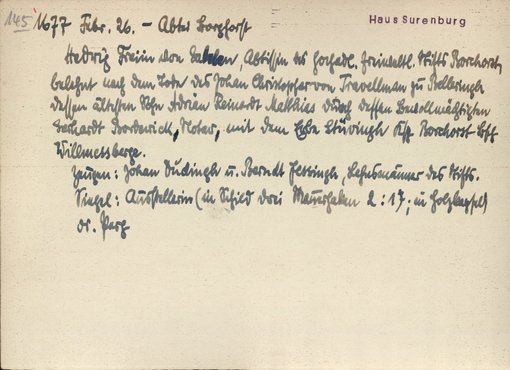 145 1677 Febr. 26. – Abtei Borghorst
Haus Surenburg
Hedwig Freiin von, Äbtissin des hochadl. freiweltl. Stifts Borchorst,
belehnt nach dem Tode des Johan Christopher von Travellman zu
dessen ältesten Sohn Adrian Reinardt Matthias durch dessen Bevollmächtigten
Gerhardt Borderwich, Notar, mit dem Erbe Stüvingh Ksp. Borchorst Bff.
Willmetsberge.
Zeugen: Johan Dudingh u. Berndt, Lehnsmänner des Stifts.
Siegel: Ausstellerin (in Schild drei Mauerhaken 2:1?; in Holzkapsel)
Or. Perg